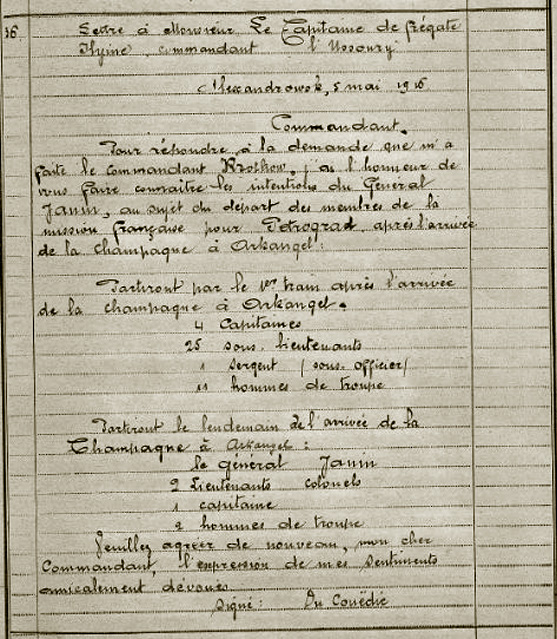 36 Lettre à Monsieur Le Capitaine de frégate
Ilyine, commandant l'Ussoury
Alexandrowsk, 5 mai 1916
Commandant.
Pour répondre à la demande que m'a
faite le commandant Krotkow, j'ai l'honneur de
vous faire connaitre les intentions du Général
Janin, au sujet du départ des membres de la
mission française pour Petrograd, après l'arrivée
de la Champagne à Arkangel:
Partiront par le 1er train après l'arrivée
de la Champagne à Arkangel.
4 Capitaines
25 sous-lieutenants
1 sergent (sous-officier)
11 hommes de troupe
Partiront le lendemain de l'arrivée de la
Champagne à Arkangel:
Le général Janin
2 Lieutenants colonels
1 capitaine
2 hommes de troupe
Veuillez agréer de nouveau, mon cher
Commandant, l'expression de mes sentiments
amicalement dévoués
Signé: Du Couëdic